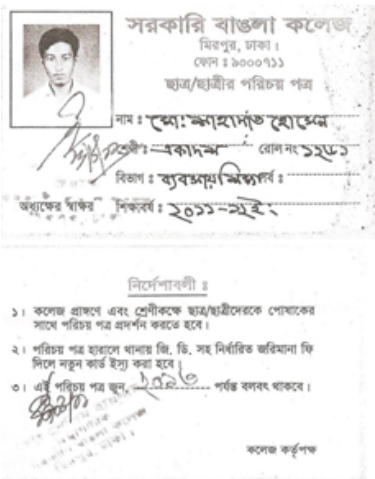 সরকারি বাঙলা কলেজ
মিরপুর, ঢাকা।
ফোন : ৯০০০৭১১
ছাত্র/ছাত্রীর পরিচয় পত্র
নাম : মো: শাহাদাত হোসেন
শ্রেণী : একাদশ রোল নং ১২৫১
বিভাগ : ব্যবসায় শিক্ষা বর্ষ :
অধ্যক্ষের স্বাক্ষর শিক্ষাবর্ষ : ২০১১-১২ইং
নির্দেশাবলী :
১। কলেজ প্রাঙ্গণে এবং শ্রেণীকক্ষে ছাত্র/ছাত্রীদেরকে পোষাকের
সাথে পরিচয় পত্র প্রদর্শন করতে হবে।
২। পরিচয় পত্র হারালে থানায় জি. ডি. সহ নির্ধারিত জরিমানা ফি
দিলে নতুন কার্ড ইস্যু করা হবে।
৩। এই পরিচয় পত্র জুন, ২০১৩ পর্যন্ত বলবৎ থাকবে।
কলেজ কর্তৃপক্ষ